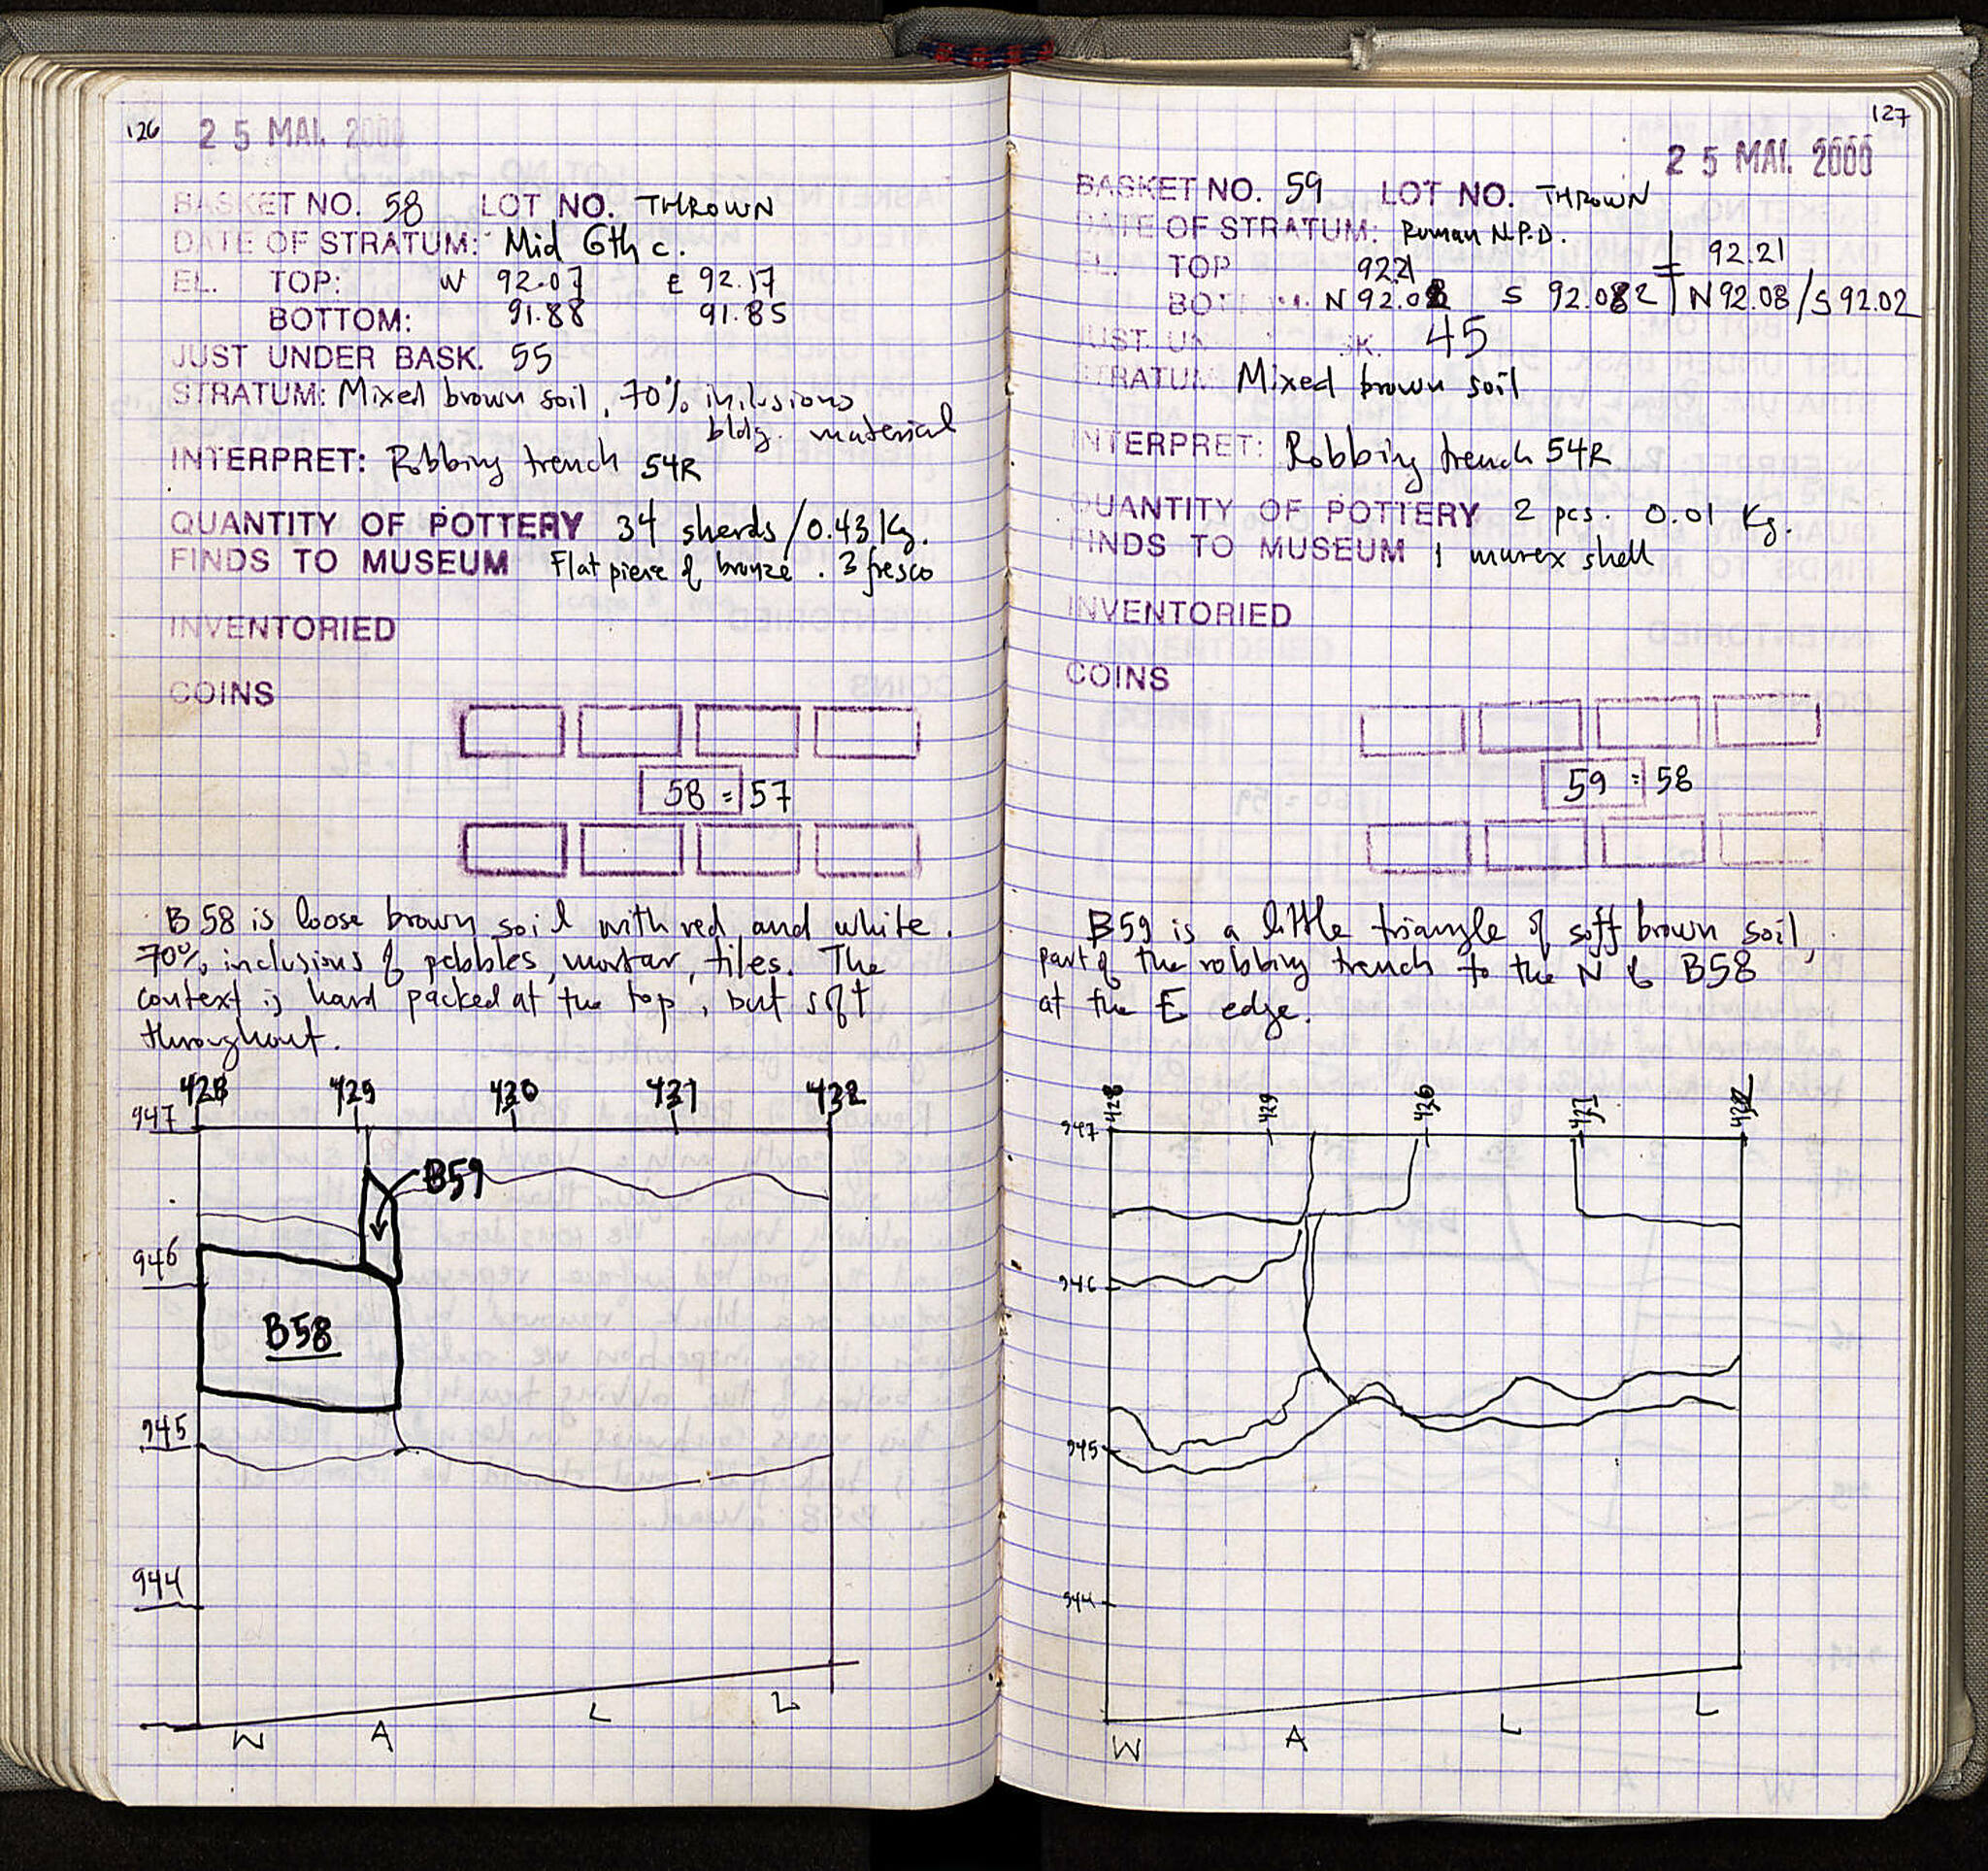 126
25 MAI. 2000
BASKET NO. 58 LOT NO. THROWN
DATE OF STRATUM: Mid 6th c.
EL. TOP: W 92.07 E 92.17
BOTTOM: 91.88 91.85
JUST UNDER BASK. 55
STRATUM: Mixed brown soil, 70% inclusions
bldg. material
INTERPRET: Robbing trench 54R
QUANTITY OF POTTERY 34 sherds/0.43 Kg.
FINDS TO MUSEUM Flat piece of bronze. 3 fresco
INVENTORIED
COINS
58 = 57
B58 is loose brown soil with red and white.
70% inclusions of pebbles, mortar, tiles. The
context is hard packed at the top, but soft
throughout.
428 429 430 431 432
947
B59
946
B58
945
944
W A L L
127
25 MAI. 2000
BASKET NO. 59 LOT NO. THROWN
DATE OF STRATUM: Roman N.P.D.
EL. TOP 92.21 92.21
N 92.08 S 92.082 N 92.08/S 92.02
45
STRATUM Mixed brown soil
INTERPRET: Robbing trench 54R
QUANTITY OF POTTERY 2 pcs. 0.01 Kg.
FINDS TO MUSEUM 1 murex shell
INVENTORIED
COINS
59 = 58
B59 is a little triangle of soft brown soil,
part of the robbing trench to the N of B58
at the E edge.
428 429 432
947
946
945
944
W A L L